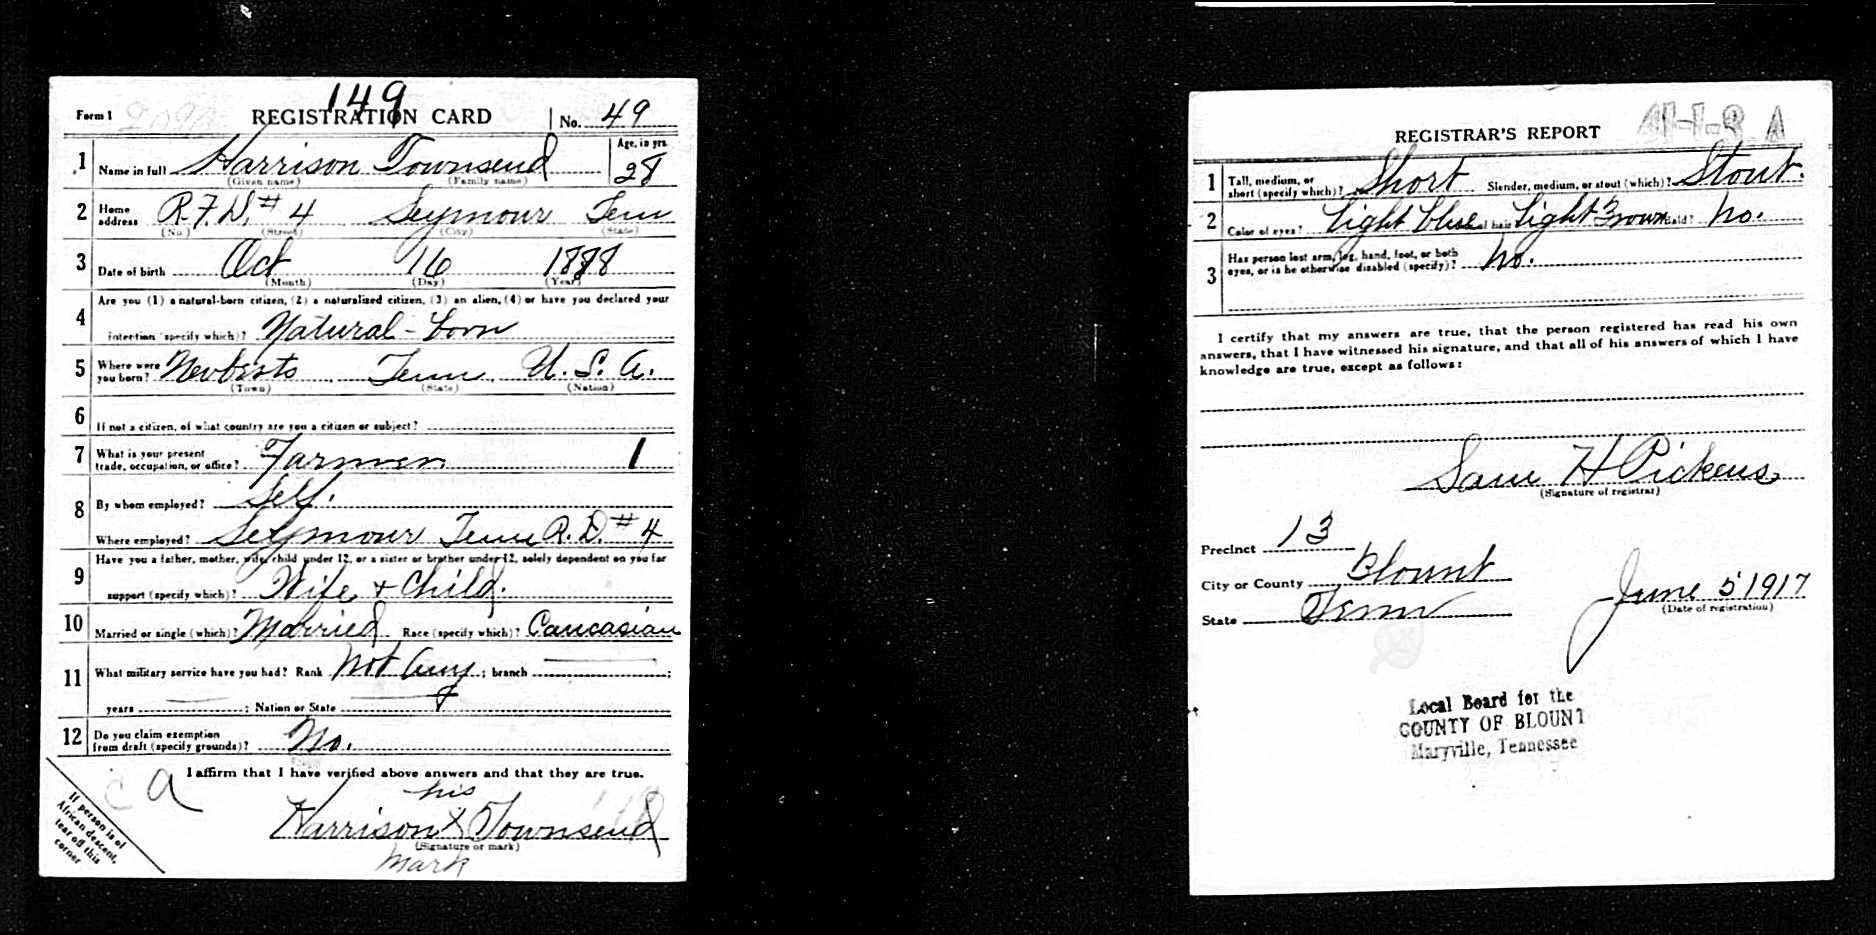 149
Form 1 REGISTRATION CARD No. 49
1 Name in full Harrison Townsend Age, in yrs. 28
(Given name) (Family name)
2 Home address R.F.D. # 4 Seymour Tenn
(No.) (Street) (City) (State)
3 Date of birth Oct 16 1888
(Month) (Day) (Year)
4 Are you (1) a natural-born citizen, (2) a naturalized citizen, (3) an alien, (4) or have you declared your
intention (specify which)? Natural-born
5 Where were you born? Tenn. U. S. A.
(Town) (State) (Nation)
6 If not a citizen, of what country are you a citizen or subject?
7 What is your present trade, occupation, or office? Farmer 1
8 By whom employed? Self.
Where employed? Seymour Tenn R. D. # 4
9 Have you a father, mother, wife, child under 12, or a sister or brother under 12, solely dependent on you for
support (specify which)? Wife + Child.
10 Married or single (which)? Married Race (specify which)? Caucasian
11 What military service have you had? Rank Not any ; branch ;
years ; Nation or State
12 Do you claim exemption from draft (specify grounds)? No.
I affirm that I have verified above answers and that they are true.
a
his
Harrison X Townsend
(Signature or mark)
mark
If person is of
African descent,
tear off this
corner
REGISTRAR'S REPORT
1 Tall, medium, or short (specify which)? Short Slender, medium, or stout (which)? Stout.
2 Color of eyes? Light blue of hair Light Brown Bald? No.
3 Has person lost arm, leg, hand, foot, or both eyes, or is he otherwise disabled (specify)? No.
I certify that my answers are true, that the person registered has read his own
answers, that I have witnessed his signature, and that all of his answers of which I have
knowledge are true, except as follows:
Sam H Pickens
(Signature of registrar)
Precinct 13
City or County Blount
State Tenn
June 5 1917
(Date of registration)
Local Board for the
COUNTY OF BLOUNT
Maryville, Tennessee